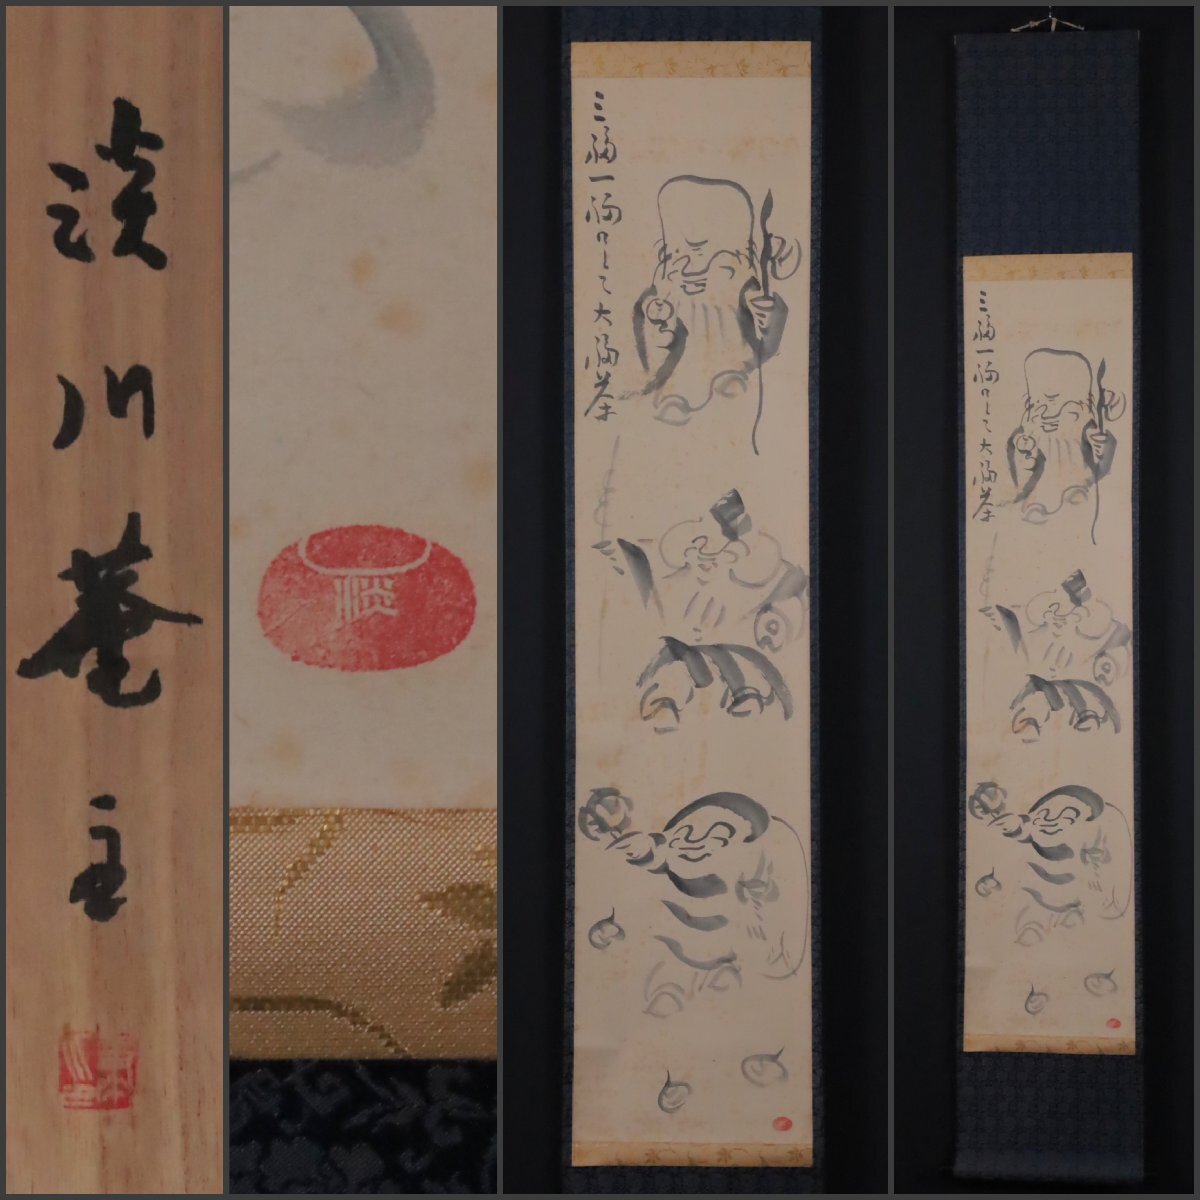 淡川菴主
淡
三福一福にして大福茶
三福一福にして大福茶